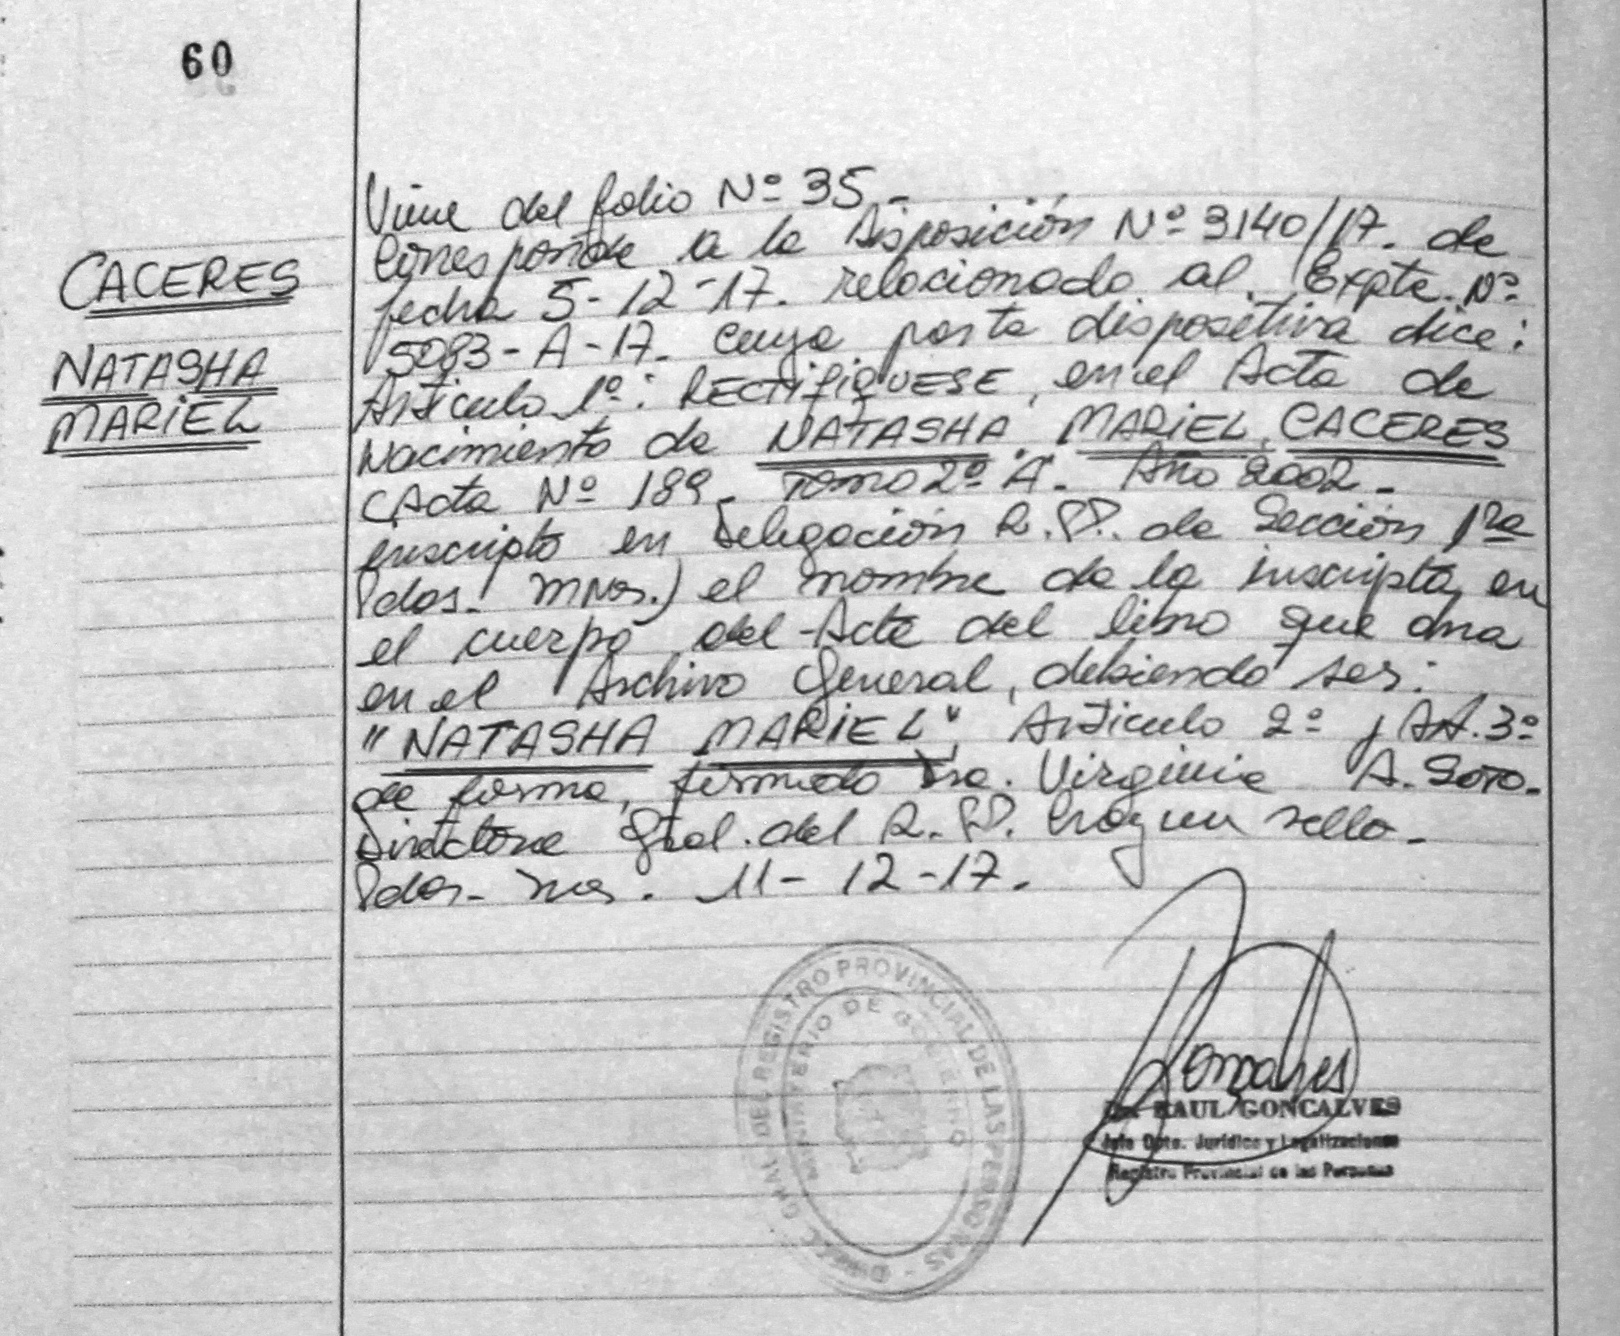 60
CACERES
NATASHA
MARIEL
Viene del folio Nº 35.-
Corresponde a la Disposición Nº 3140/17. de
fecha 5-12-17. relacionado al. Expte. Nº
5083-A-17. cuya parte dispositiva dice:
Articulo 1º: RECTIFIQUESE, en el Acta de
Nacimiento de NATASHA MARIEL CACERES
(Acta Nº 189. Tomo 2º A. Año 2002.-
inscripto en Delegación R.P.P. de Sección 1ra
Pdas. Mnes.) el nombre de la inscripta, en
el cuerpo del Acta del libro que obra
en el Archivo General, debiendo ser:
"NATASHA MARIEL" Articulo 2º y Art. 3º
de forma, firmado Dra. Virginia A. Soto.
Directora Gral. del R.P.P. Hay un sello.-
Pdas. Mnes. 11-12-17.
DIRECC. GRAL. DEL REGISTRO PROVINCIAL DE LAS PERSONAS -
MINISTERIO DE GOBIERNO
Goncalves
Dr. RAUL GONCALVES
Jefe Dpto. Jurídico y Legalizaciones
Registro Provincial de las Personas